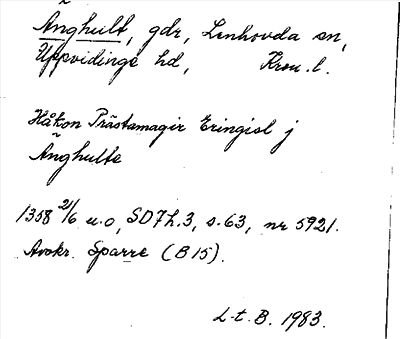 Änghult, gdr, Lenhovda sn,
Uppvidinge hd, Kron. l.
Håkon Prästamagir Eringisl j
Änghulte
1358 21/6 u.o, SD7h.3, s.63, nr 5921.
Avskr. Sparre (B15).
L-t. B. 1983.